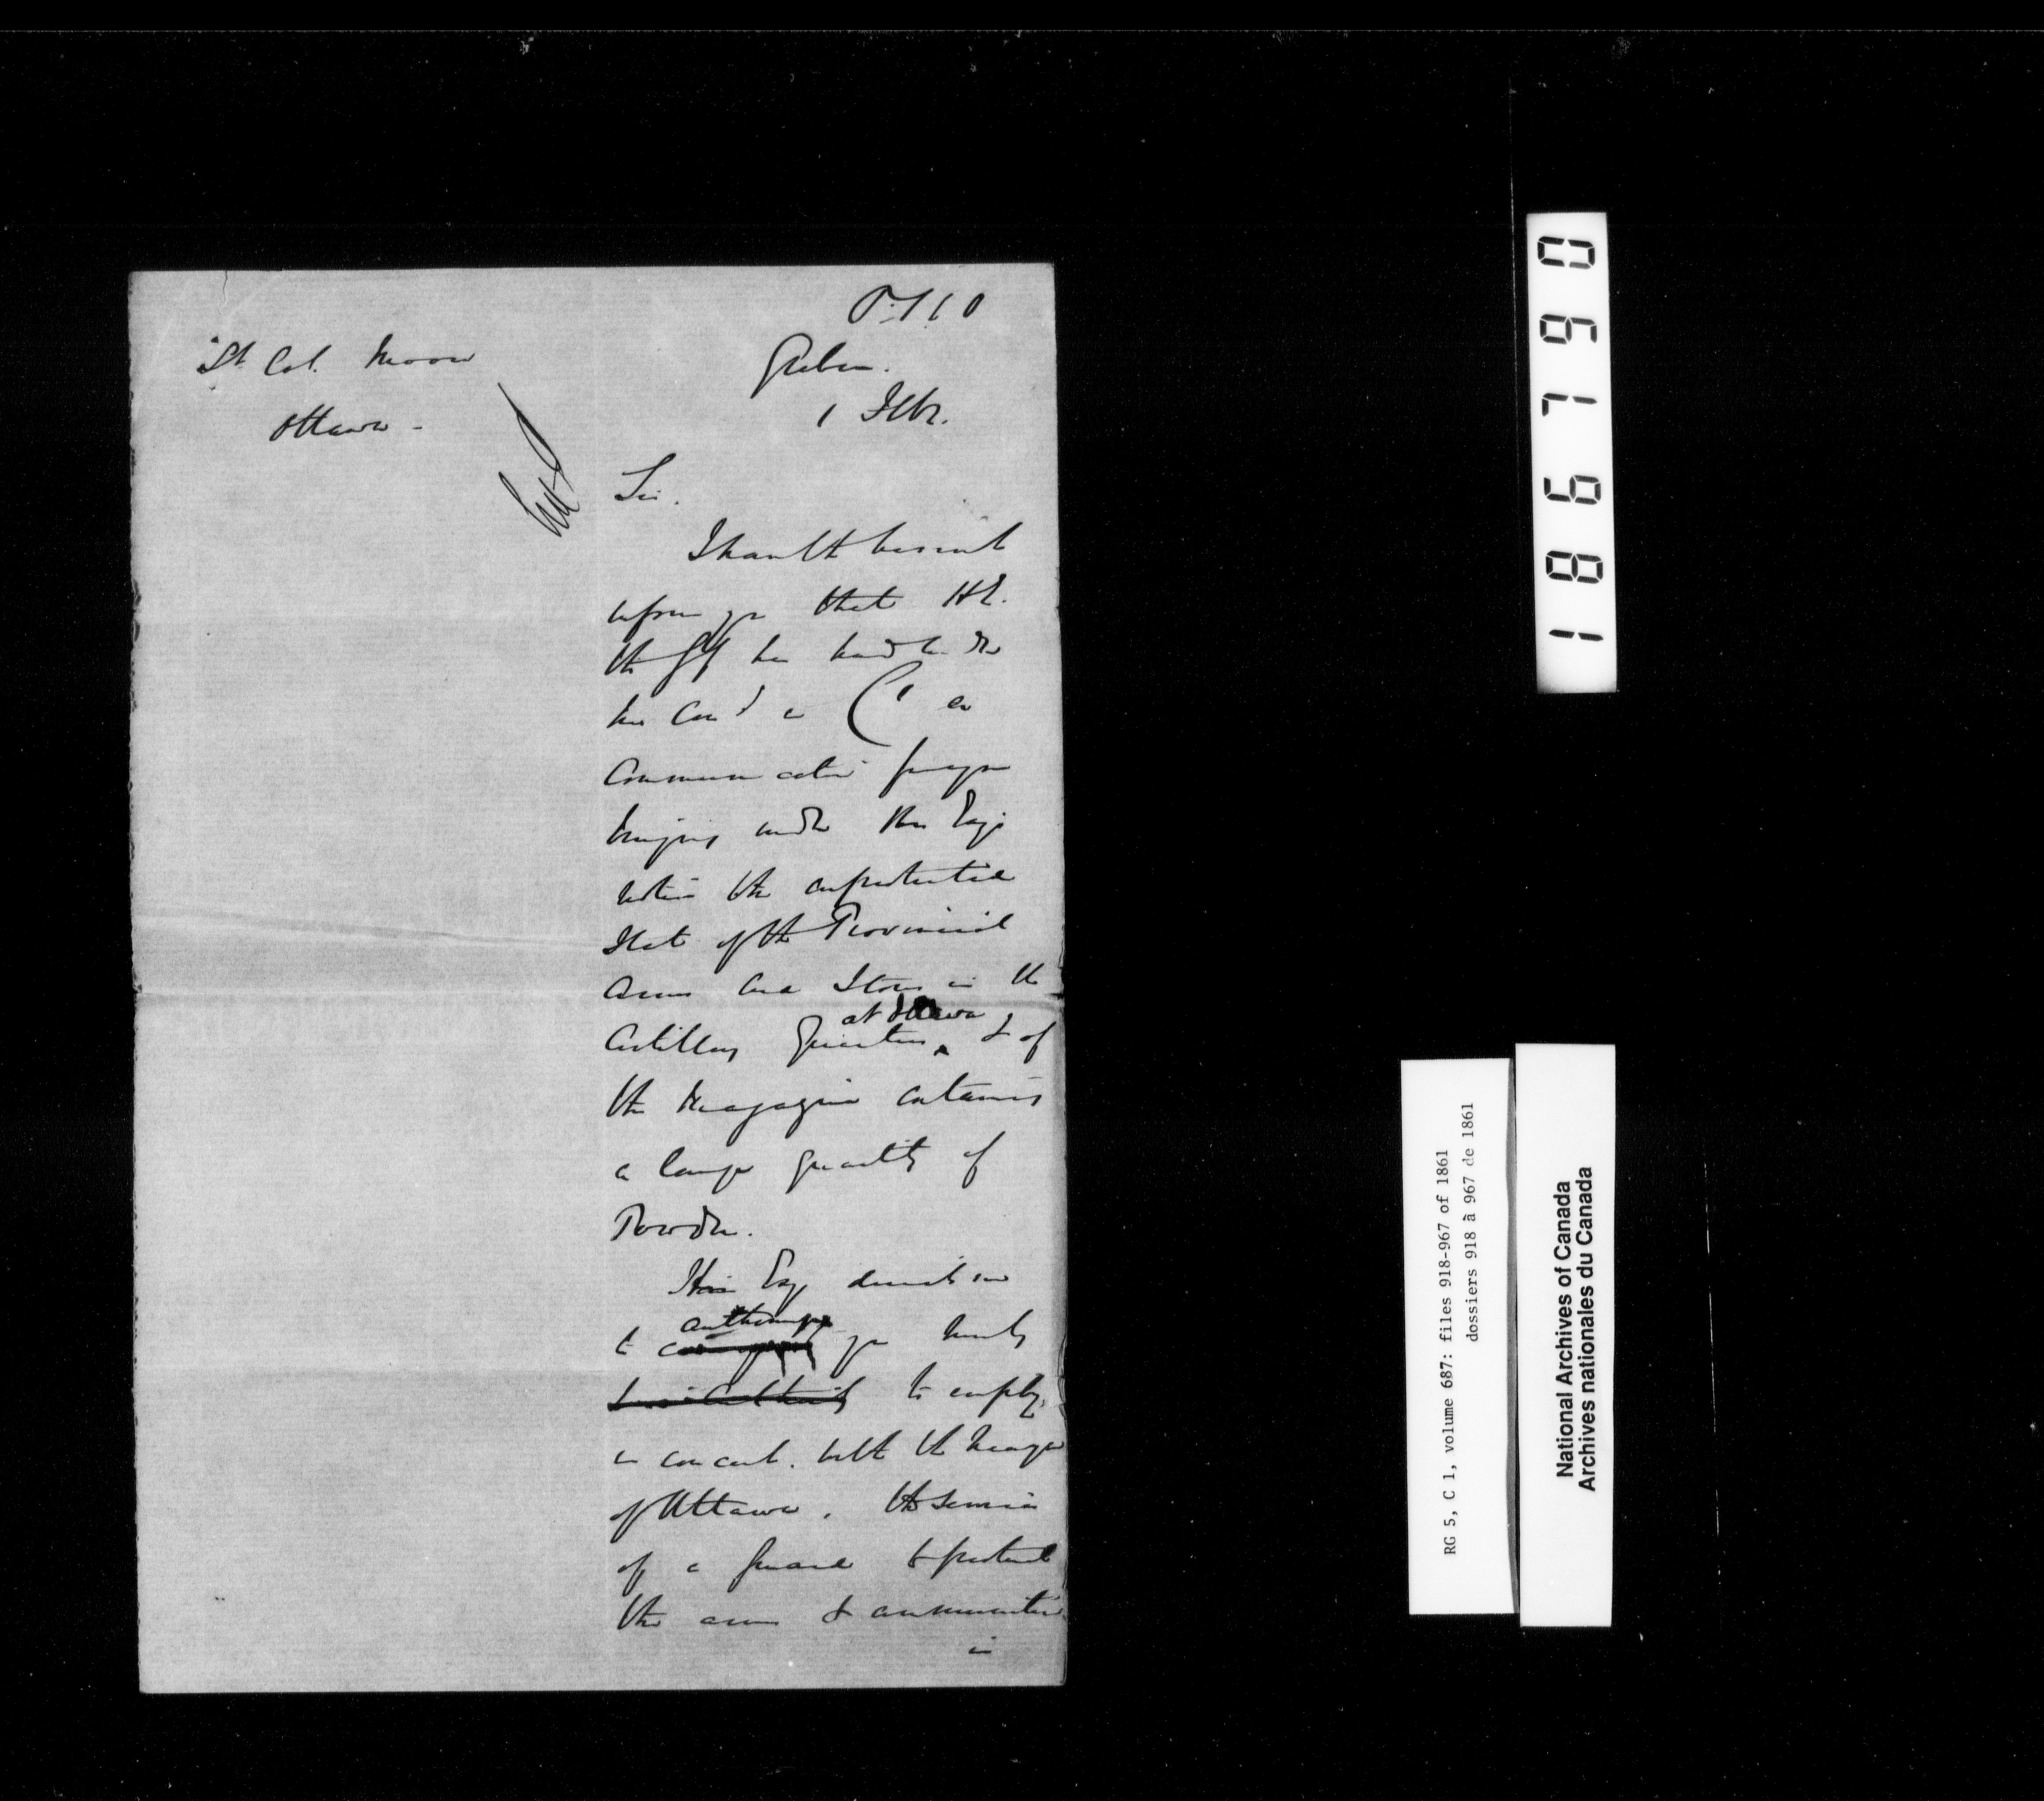 Lt Col. Moore
Ottawa -
Quebec.
1 Febr.
Sir.
I have the honor to
inform you that H.E.
the GG has had under
his Cons.n a
Communication from you
bringing under His Excy's
notice the unprotected
State of the Provincial
Arms and Stores in the
at Ottawa
Artillery Quarters & of
the Magazine containing
a large quantity of
Powder.
His Excy desires me
authorize
to you hereby
to employ,
in concert with the Mayor
of Ottawa, the services
of a Guard to protect
the arms & ammunition
in
186790
RG 5, C 1, volume 687: files 918-967 of 1861
dossiers 918 à 967 de 1861
National Archives of Canada
Archives nationales du Canada